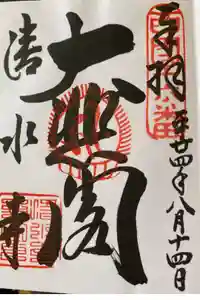 奉拝
平廿四年八月十四日
大悲閣
清水寺